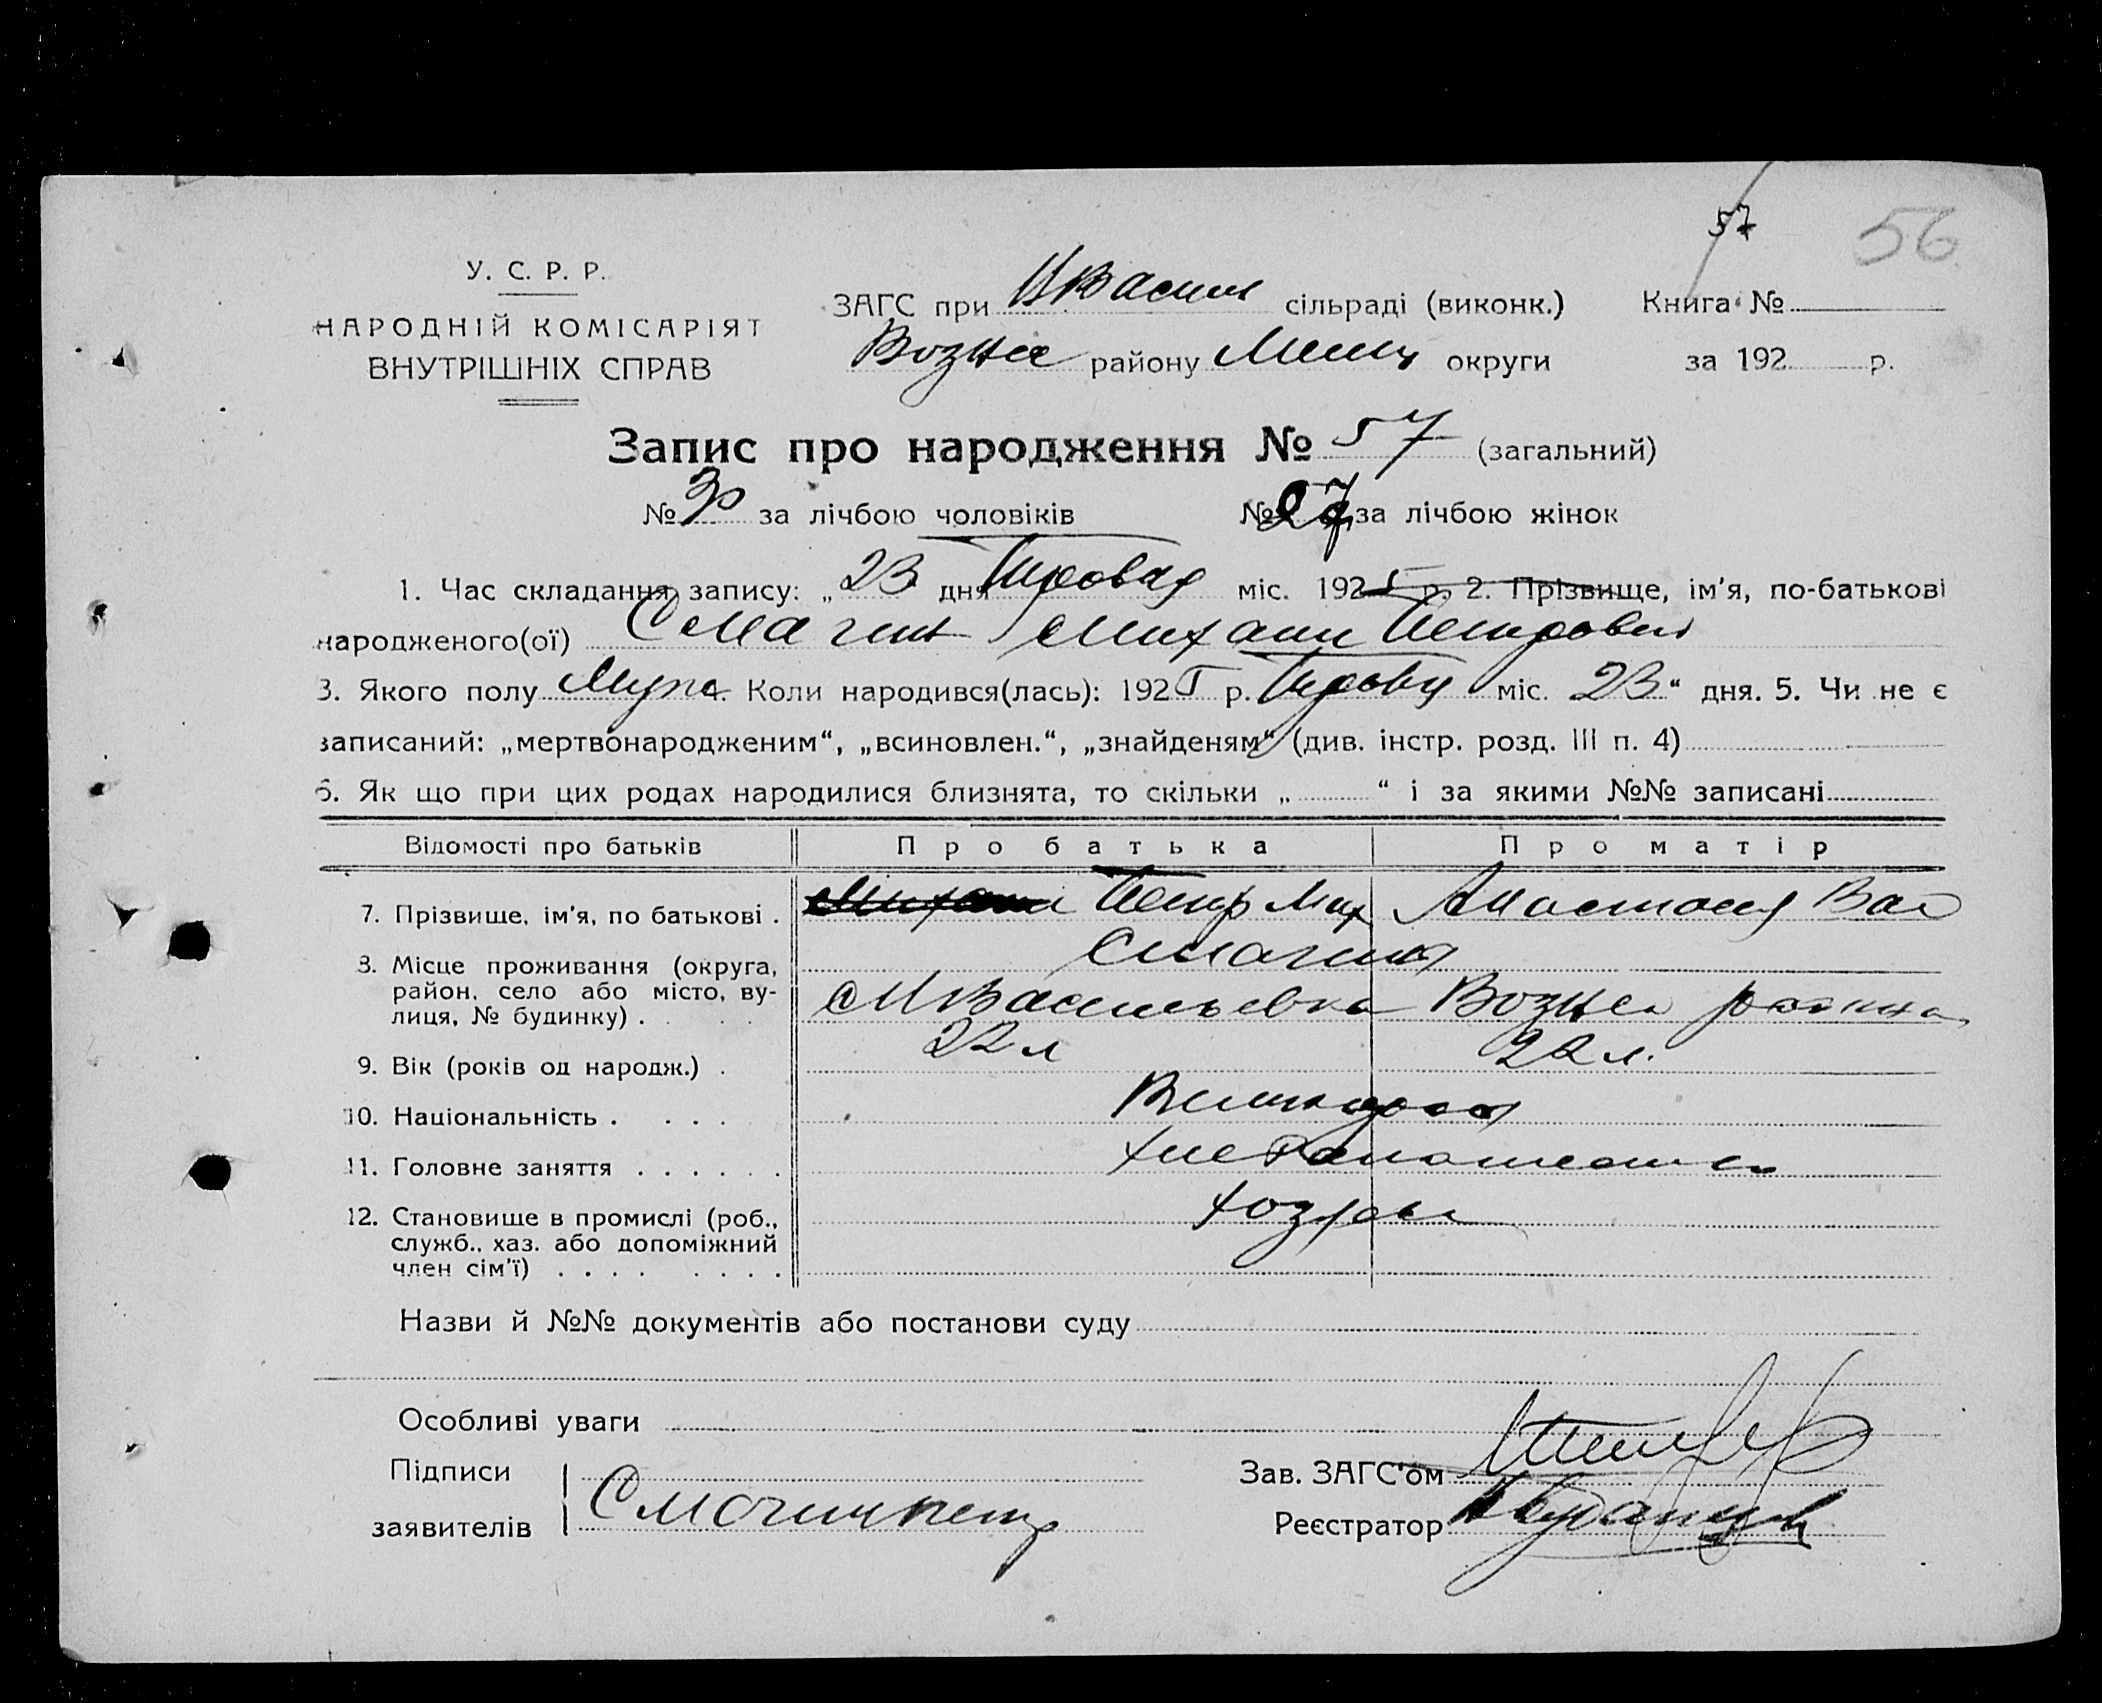 57 56
У. С. Р. Р.
НАРОДНІЙ КОМІСАРІЯТ
ВНУТРІШНІХ СПРАВ
ЗАГС при сільраді (виконк.) Книга №
Вознес району округи за 192 р.
Запис про народження № 57 (загальний)
№ 30 за лічбою чоловіків № 27 за лічбою жінок
1. Час складання запису: „ 23 дня міс. 1925 р. 2. Прізвище, ім’я, по-батькові
народженого(ої) Смагин Михаил Петрович
3. Якого полу Муж 4. Коли народився(лась): 1925 р. міс. 23 “ дня. 5. Чи не є
записаний: „мертвонародженим“, „всиновлен.“, „знайденям“ (див. інстр. розд. III п. 4)
6. Як що при цих родах народилися близнята, то скільки „ “ і за якими №№ записані
Відомості про батьків Про батька Про матір
7. Прізвище, ім’я, по батькові . Михаил Петр Мих Анастасия Вас
Смагины
8. Місце проживання (округа,
район, село або місто, ву-
лиця, № будинку) . Васильевка Вознес района
9. Вік (років од народж.) . 22 л 22 л.
10. Національність . . . .
11. Головне заняття . . . . . . хлебопашество
12. Становище в промислі (роб.,
служб., хаз. або допоміжний
член сім’ї) . . . . . . . .
Назви й №№ документів або постанови суду
Особливі уваги
Підписи Зав. ЗАГС’ом
заявителів Смагин Петр Реєстратор